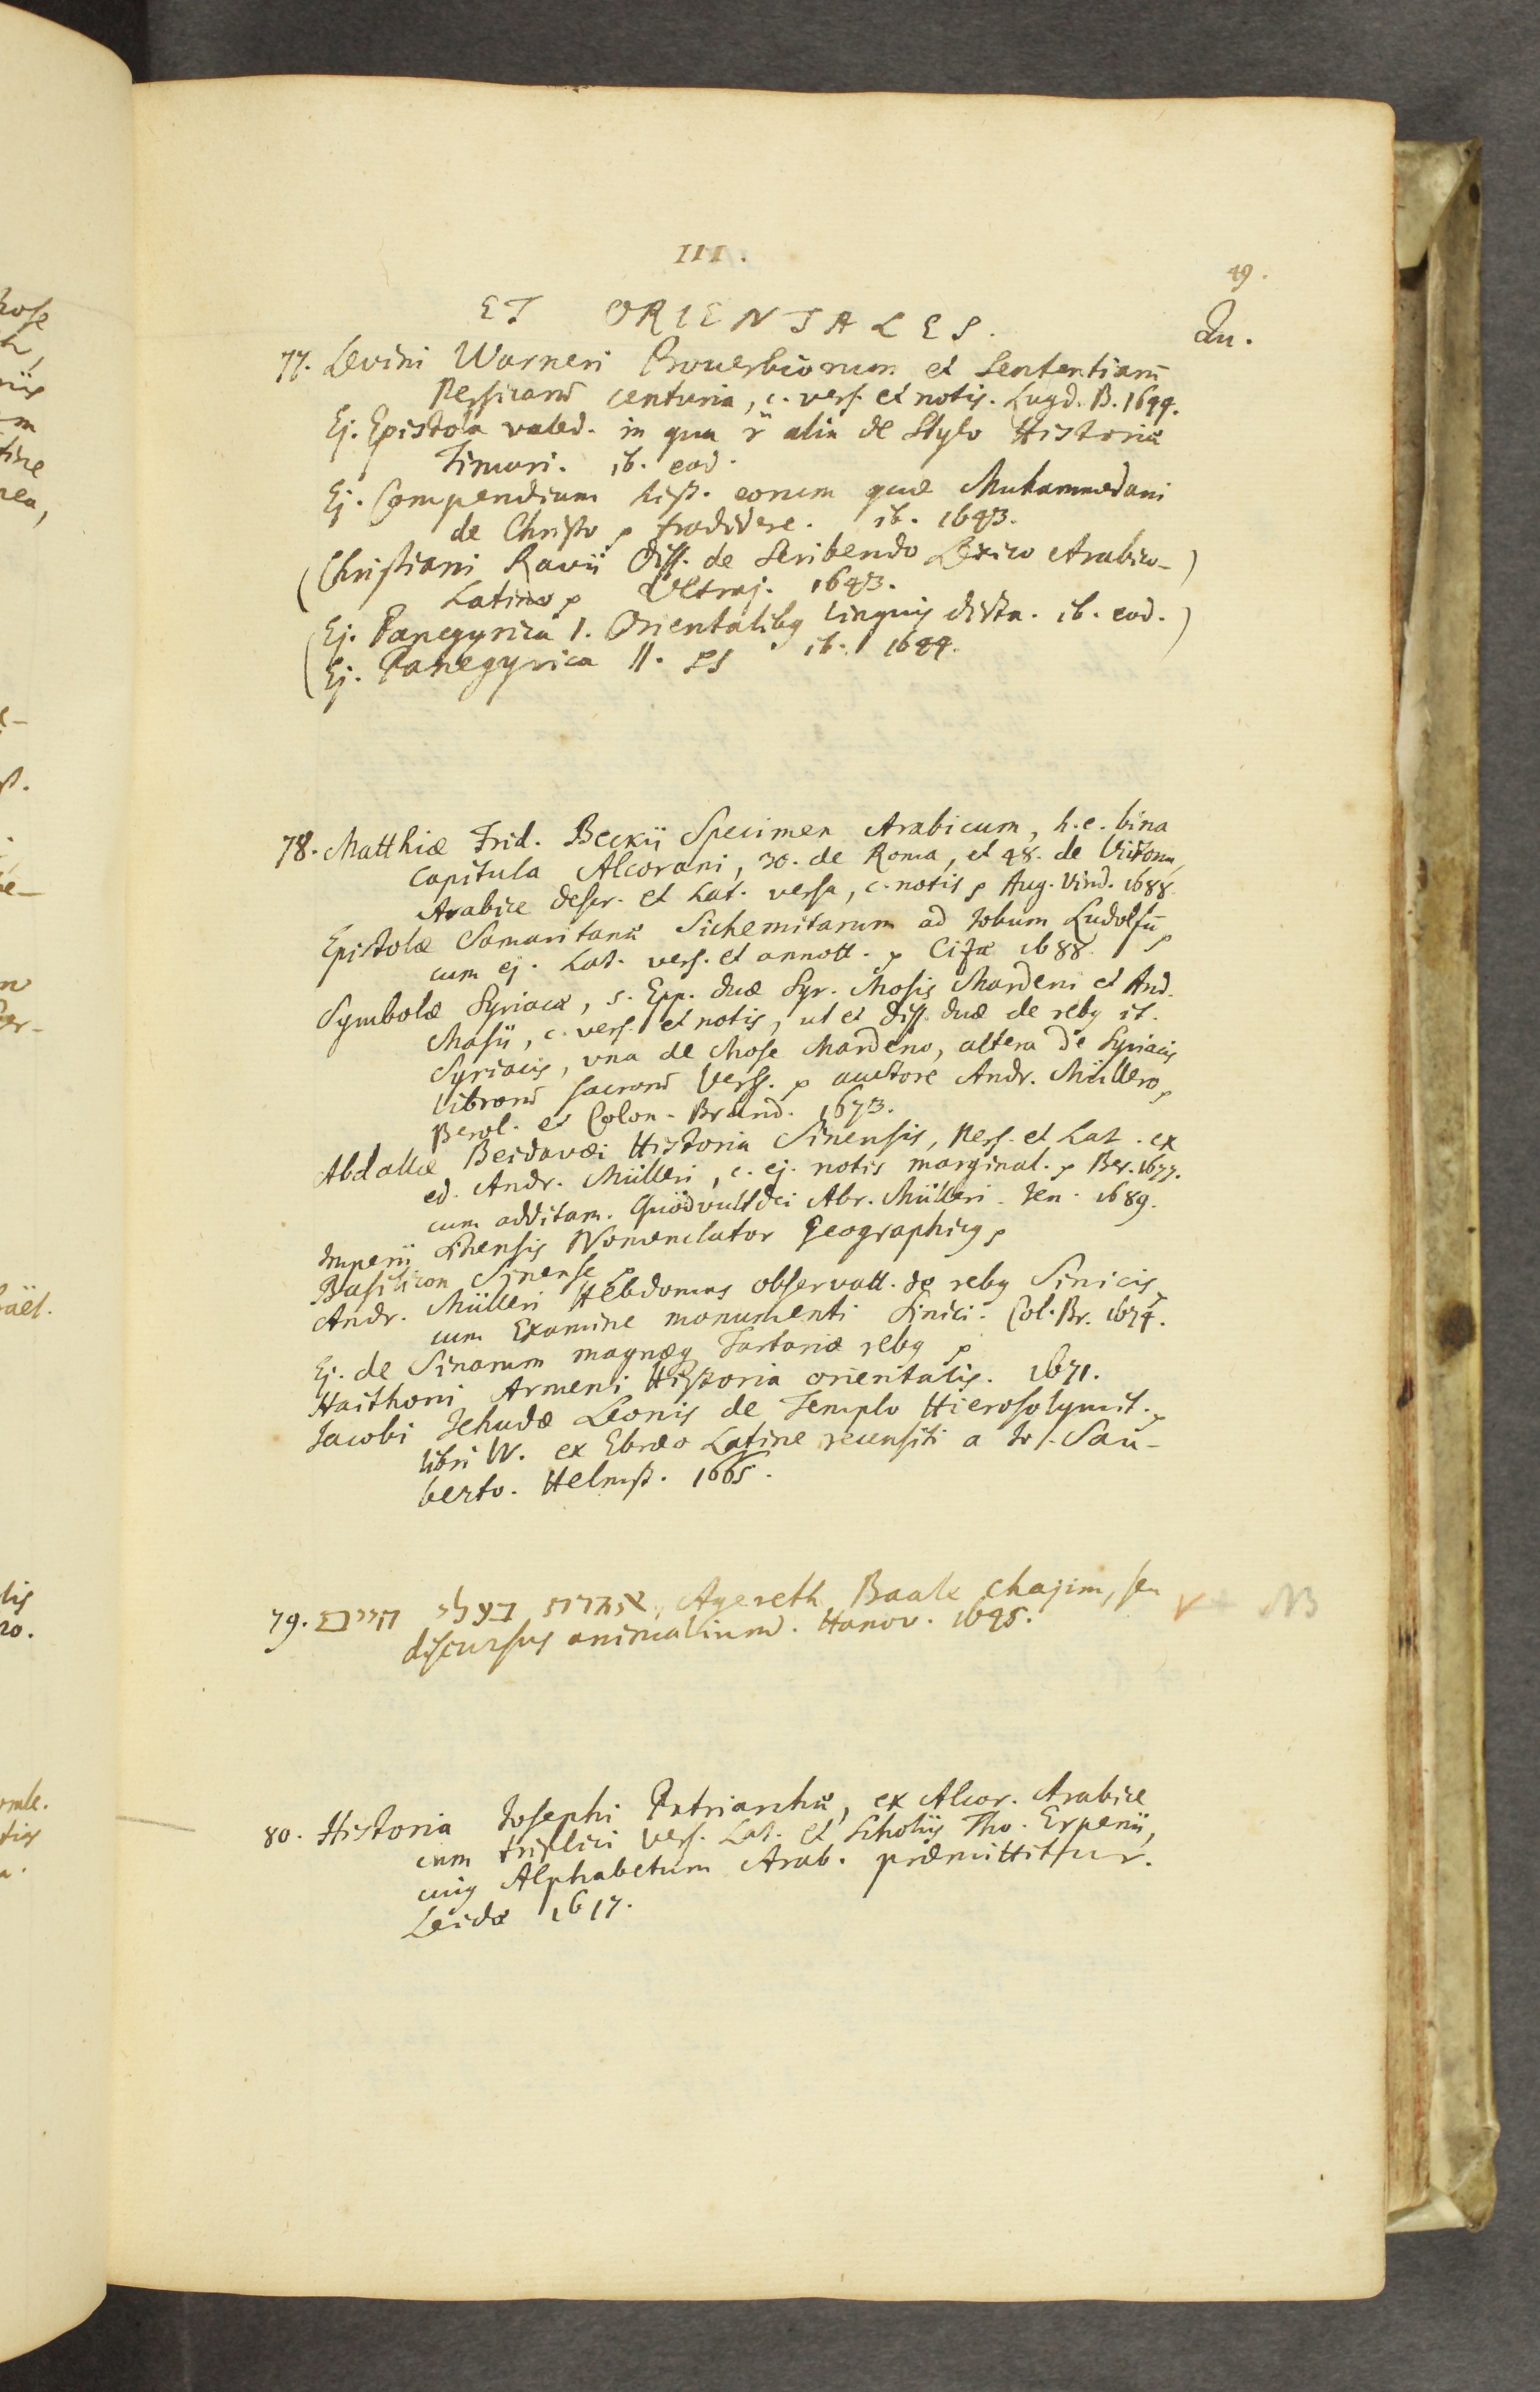 III.
49.
ET ORIENTALES.
Qu.
77. Levini Warneri Proverbiorum et Sententiarū
Persicarū centuria, c. vers. et notis. Lugd. B. 1644.
Ej. Epistola valed. in qua alia de Stylo Historiæ
Timuri. ib. eod.
Ej. Compendium hist. eorum quæ Muhammedani
de Christo tradidere. ib. 1643.
(Christiani Ravii Diss. de Scribendo Lexico Arabico-)
Latino Ultraj. 1643.
(Ej. Panegyrica I. Orientalibꝰ linguis dicta. ib. eod.)
Ej. Panegyrica II. ib. 1644.
78. Matthiæ Frid. Beckii Specimen Arabicum, h.e. bina
Capitula Alcorani, 30. de Roma, et 48. de Victoria,
Arabice descr. et Lat. versa, c. notis Aug. Vind. 1688.
Epistolæ Samaritanæ Sichemitarum ad Jobum Ludolfū
cum ej. Lat. vers. et annott. Cizæ 1688
Symbolæ Syriacæ, s. Epp. duæ Syr. Mosis Mardeni et And.
Masii, c. vers. et notis, ut et diss. duæ de rebꝰ it.
Syriacis, una de Mose Mardeno, altera de Syriacis
librorū sacrorū Verss. auctore Andr. Müllero,
Berol. et Colon. Brand. 1673.
Abdallæ Beidavæi Historia Sinensis, Pers. et Lat. ex
ed. Andr. Mülleri, c. ej. notis marginal. Ber. 1677.
cum additam. Quodvultdei Abr. Mülleri. Jen. 1689.
Imperii Sinensis Nomenclator Geographicꝰ
Basilicon Sinense
Andr. Mülleri Hebdomas observatt. de rebꝰ Sinicis,
cum Examine monumenti Sinici. Col. Br. 1674.
Ej. de Sinarum magnæq Tartariæ rebꝰ
Haithoni Armeni Historia orientalis. 1671.
Jacobi Jehudæ Leonis de Templo Hierosolymit.
libri IV. ex Ebræo Latine recensiti a Jo. Sau-
berto. Helmst. 1665.
79. אגרת בעלי חיים, Agereth Baale chajim, seu
discursus animaliumd. Hanov.
80. Historia Josephi Patriarchæ, ex Alcor. Arabice
cum triplici vers. Lat. et Scholiis Tho. Erpenii,
cuiꝰ Alphabetum Arab. præmittitur.
Leidæ 1617.